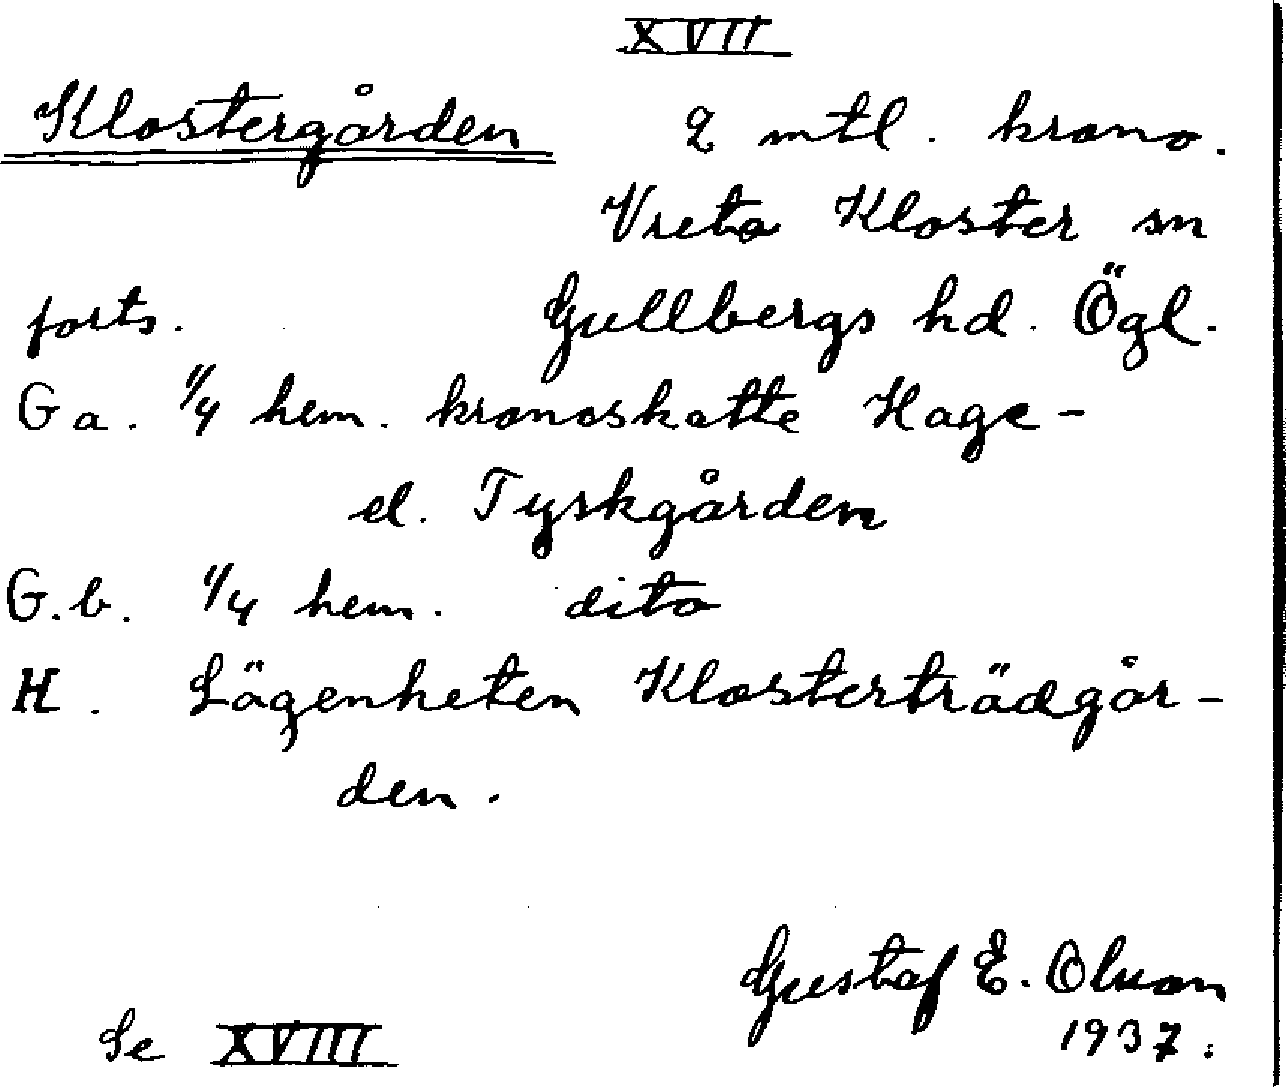 XVII
Klostergården 2 mtl. krono.
Vreta Kloster sn
forts. Gullbergs hd. Ögl.
Ga. 1/4 hem. kronoskatte Hage-
el. Tyskgården
G.b. 1/4 hem. dito
H. Lägenheten Klosterträdgår-
den.
Gustaf E. Olsson
1937.
Se XVIII